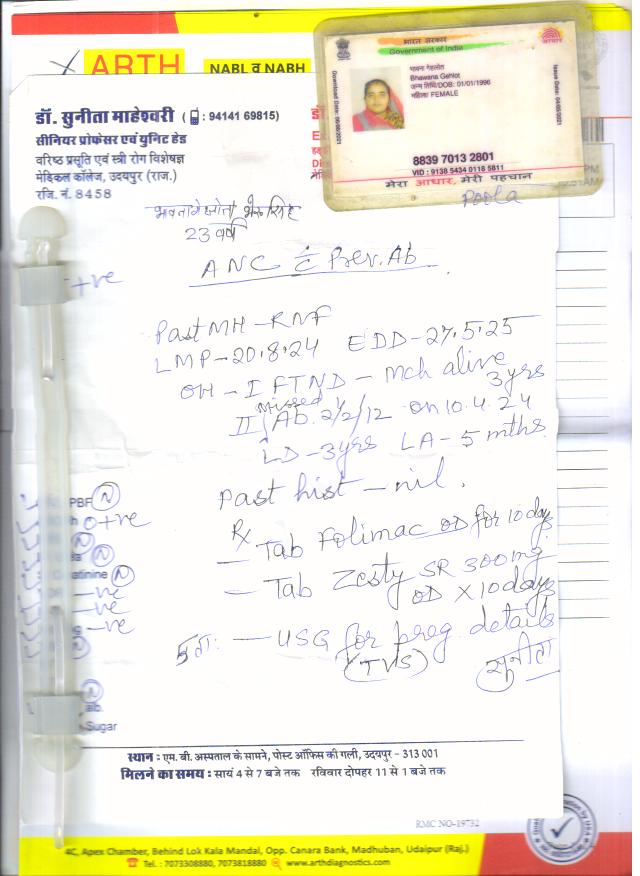 ARTH
NABL व NABH
भारत सरकार
Government of India
भावना गेहलोत
Bhawana Gehlot
जन्म तिथि/DOB: 01/01/1996
महिला/ FEMALE
8839 7013 2801
VID : 9138 5434 0118 5811
मेरा आधार, मेरी पहचान
डॉ. सुनीता माहेश्वरी ( : 94141 69815)
सीनियर प्रोफेसर एवं युनिट हेड
वरिष्ठ प्रसूति एवं स्त्री रोग विशेषज्ञ
मेडिकल कॉलेज, उदयपुर (राज.)
रजि. नं. 8458
Poola
23 वर्ष
+ve
ANC c̄ Prev. Ab
Past MH - RNF
LMP - 20.8.24 EDD - 27.5.25
OH - I FTND - Mch alive 3yrs
II Missed Ab. 2½/12 on 10.4.24
LD - 3yrs LA - 5 mths.
Past hist - nil.
PBF N
O+ve
Rx
- Tab Folimac OD for 10 days
- Tab Zesty SR 300mg
OD X 10 days
N
-ve
-ve
-ve
- USG for preg. details
(TVS) सुनीता
alb.
Sugar
स्थान : एम. बी. अस्पताल के सामने, पोस्ट ऑफिस की गली, उदयपुर - 313 001
मिलने का समय : सायं 4 से 7 बजे तक रविवार दोपहर 11 से 1 बजे तक
RMC NO-19732
4C, Apex Chamber, Behind Lok Kala Mandal, Opp. Canara Bank, Madhuban, Udaipur (Raj.)
Tel. : 7073308880, 7073818880 www.arthdiagnostics.com